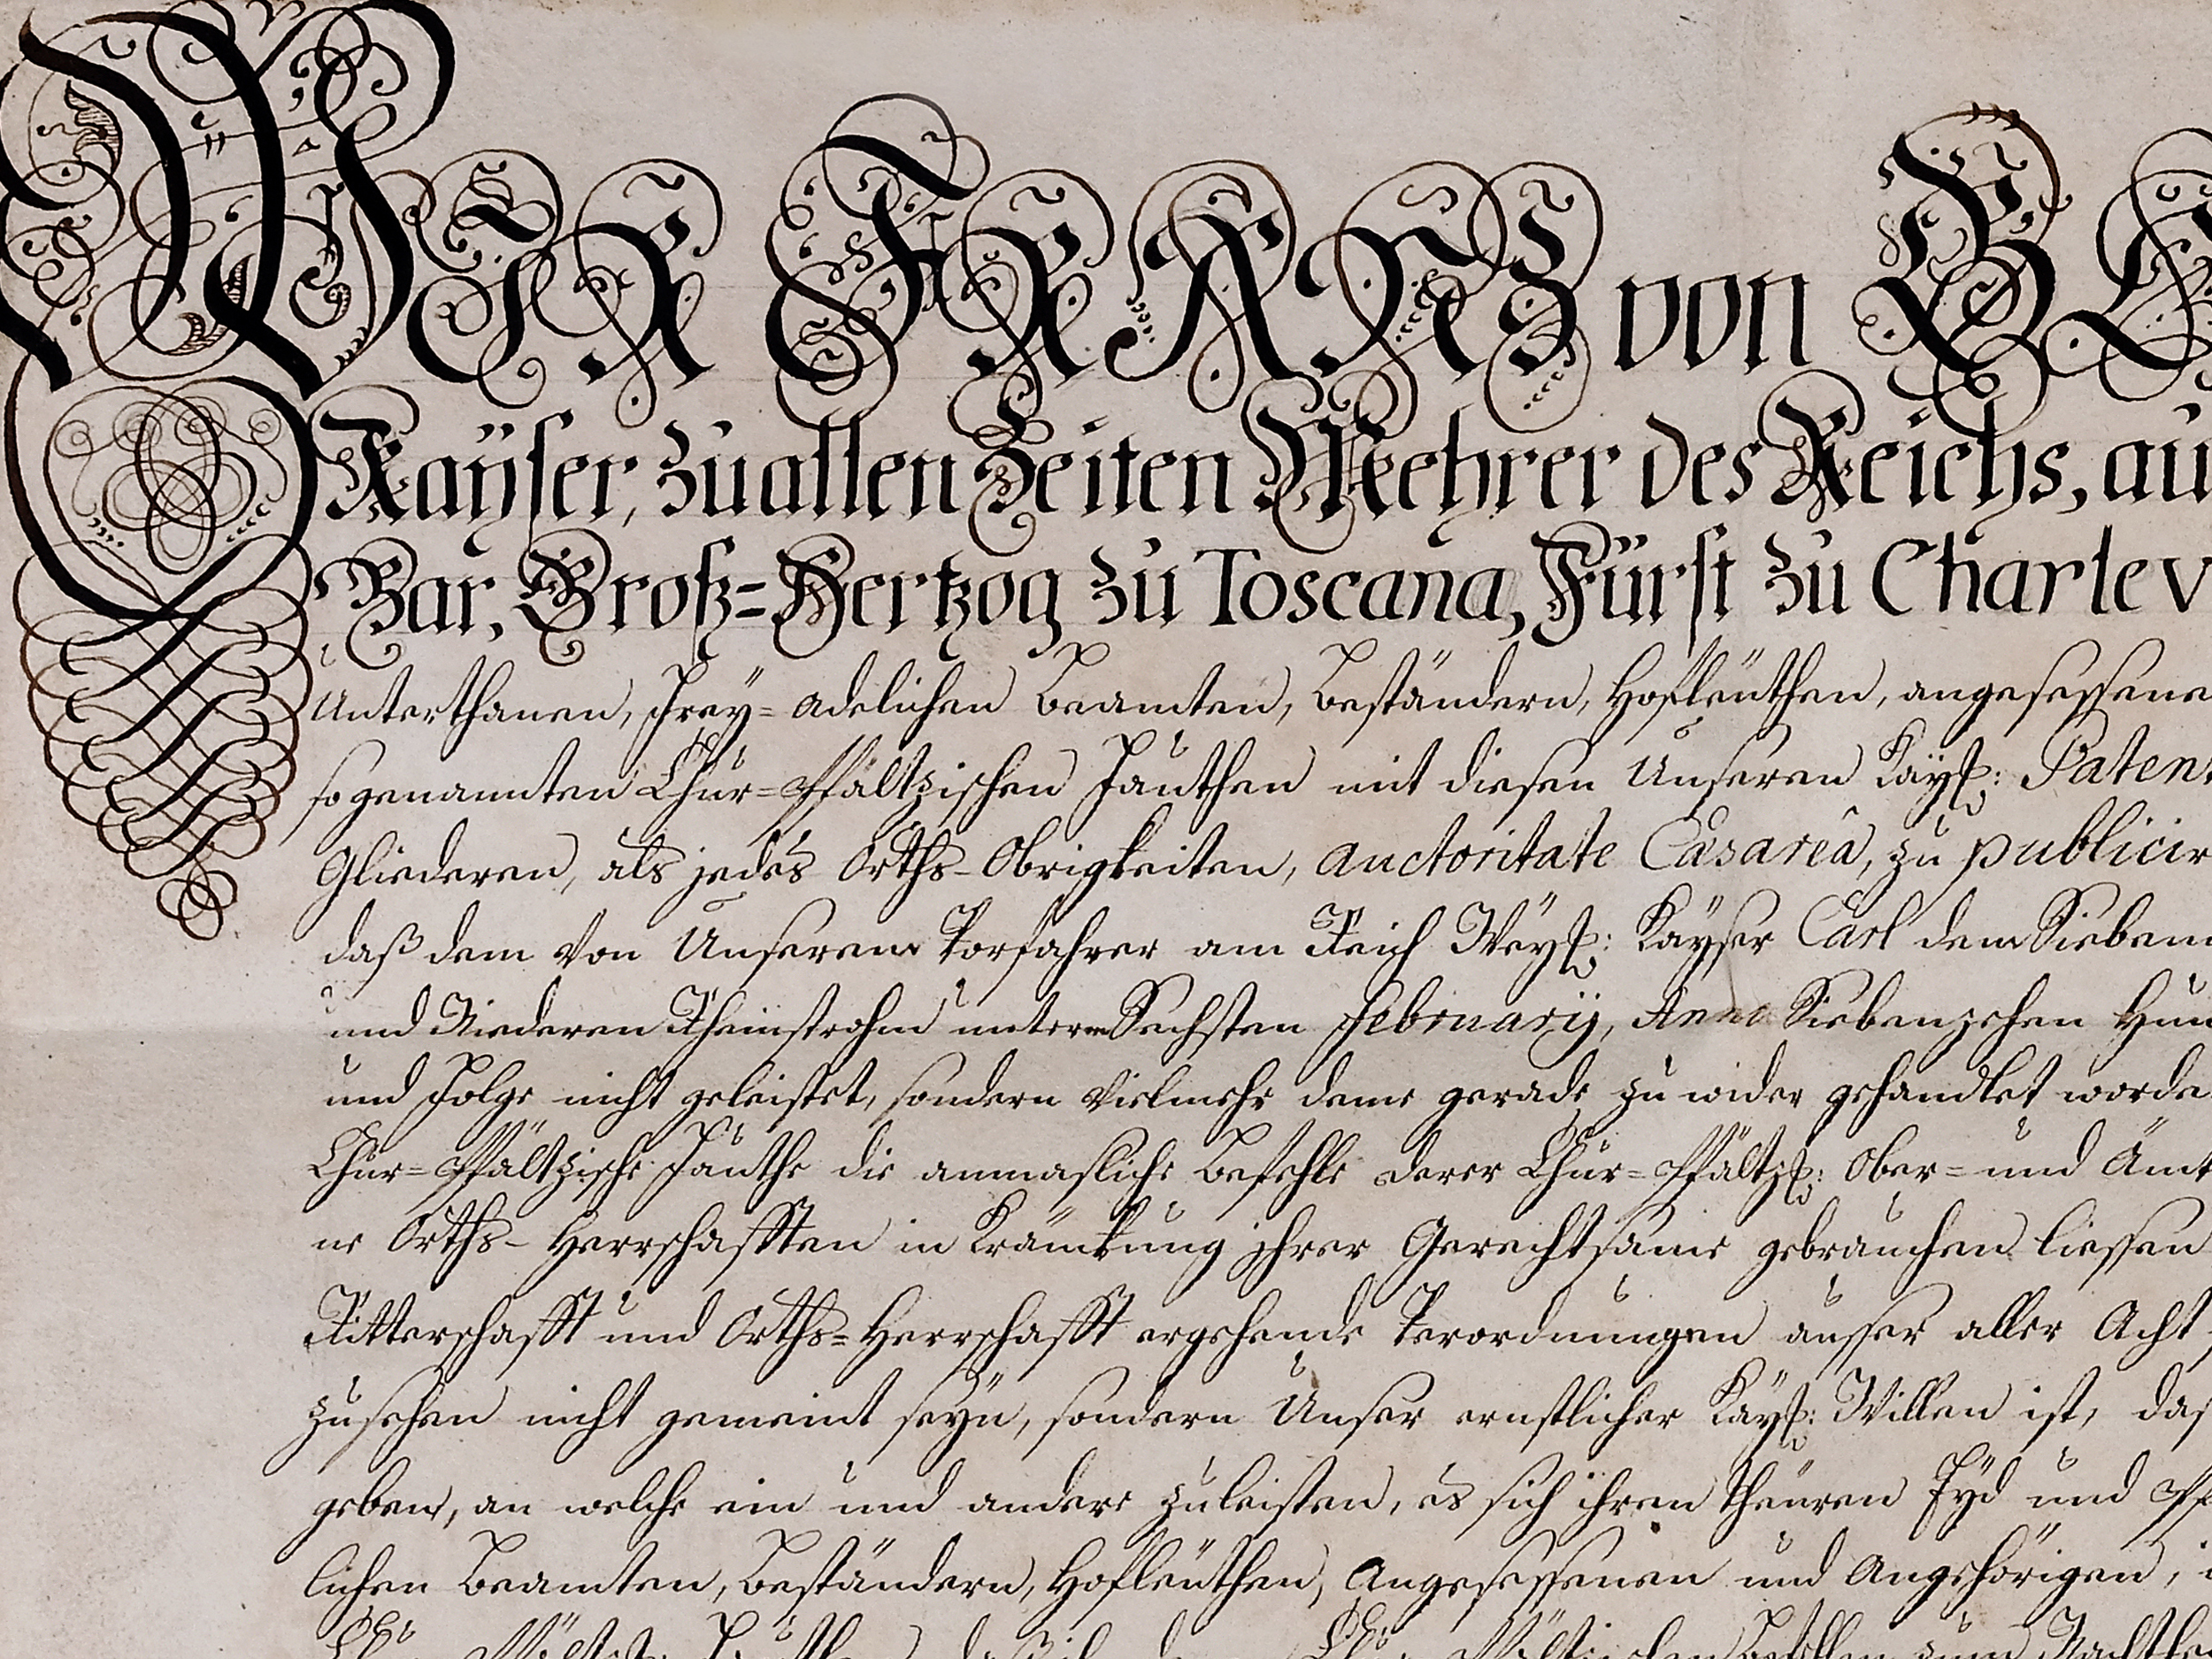 WIR FRANZ von G
Kaÿser, zu allen Zeiten Mehrer des Reichs, au
Bar, Groß=Hertzog zu Toscana, Fürst zu Charlev
Unterthanen, Freÿ=adelichen Beamten, Beständern, Hofleüthen, angesessene
so genannten Chur=Pfältzischen Fauthen mit diesen Unseren Kaÿß: Patent
Gliederen, als jedes Orths-Obrigkeiten, auctoritate Cæsareâ, zu publicir
daß dem von Unserem Vorfahrer am Reich Weÿl: Kaÿser Carl dem Sieben
und Niederen Rheinstrohm unterm Sechsten Februarij, Anno Siebenzehen Hun
und Folge nicht geleistet, sondern vielmehr deme gerade zu wider gehandlet worde
Chur=Pfältzische Fauthe die anmasliche Befehle derer Chur=Pfältzß: Ober= und Ämt
ne Orths-Herrschafften in Kränkung ihrer Gerechtsame gebrauchen liessen
Ritterschafft und Orths=Herrschafft ergehende Verordnungen ausser aller Acht
zusehen nicht gemeint seÿn, sondern Unser ernstlicher Kaÿß: Willen ist, das
geben, an welche ein und andere zuleisten, es sich ihren theuren Eÿd und Pf
lichen Beamten, Beständern, Hofleüthen, Angesessenen und Angehörigen,